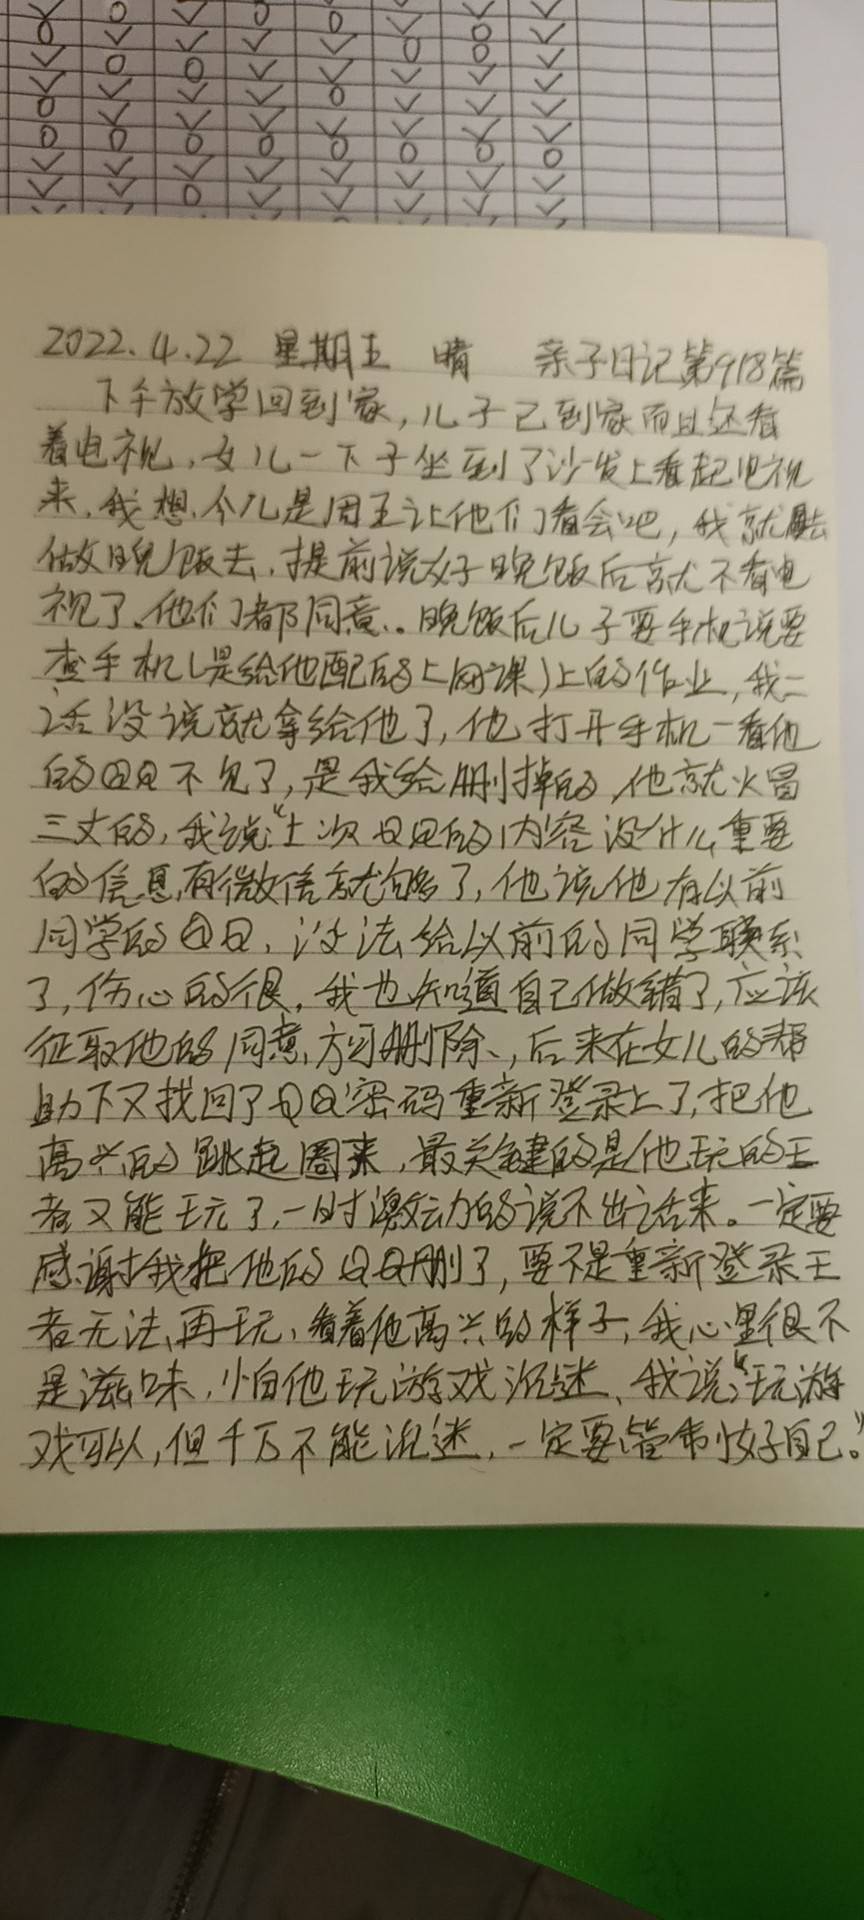 2022.4.22 星期五 晴 亲子日记第918篇
下午放学回到家，儿子已到家而且还看
着电视，女儿一下子坐到了沙发上看起电视
来，我想，今儿是周五让他们看会吧，我就
做晚饭去，提前说好晚饭后就不看电
视了、他们都同意.。晚饭后儿子要手机说要
查手机(是给他配的上网课)上的作业，我二
话没说就拿给他了，他打开手机一看他
的QQ不见了，是我给删掉的，他就火冒
三丈的，我说，“上次QQ的内容没什么重要
的信息，有微信就够了，他说他有以前
同学的QQ，没法给以前的同学联系
了，伤心的很，我也知道自己做错了，应该
征取他的同意，方可删除、，后来在女儿的帮
助下又找回了QQ密码重新登录上了，把他
高兴的跳起圈来，最关键的是他玩的王
者又能玩了，一时激动的说不出话来。一定要
感谢我把他的QQ删了，要不是重新登录王
者无法再玩，看着他高兴的样子，我心里很不
是滋味，怕他玩游戏沉迷、我说，“玩游
戏可以，但千万不能沉迷，一定要管制好自己。”